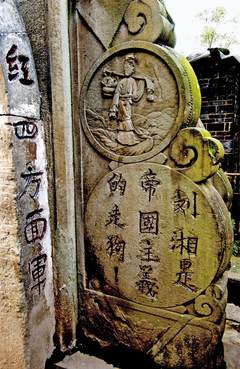 刘湘是
帝國主義
的走狗！
红四方面軍